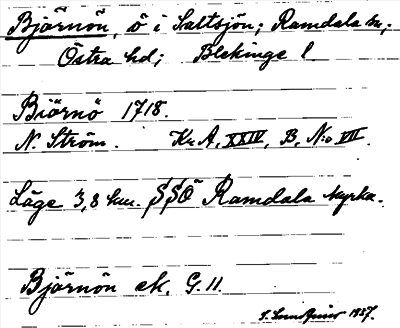 Björnön, ö i Saltsjön; Ramdala sn;
Östra hd; Blekinge l.
Biörnö 1718.
N. Ström. Kr. A, XXIV, B, N:o VII.
Läge 3,8 km. SSÖ Ramdala kyrka.
Björnön ek. G. 11.
1937.